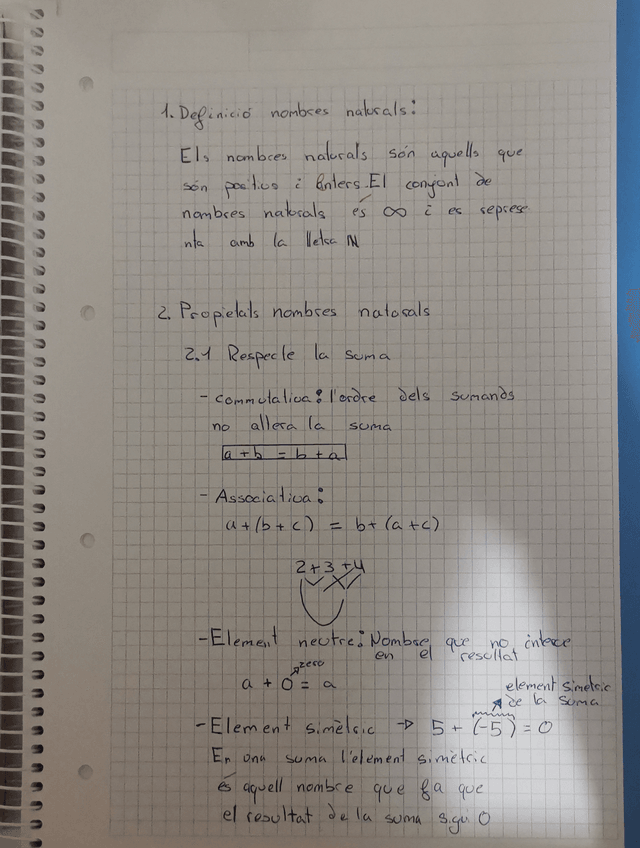 1. Definició nombres naturals:
Els nombres naturals són aquells que
són positius i Enters. El conjont de
nombres naturals és ∞ i es represe
nta amb la lletra ℕ
2. Propietats nombres naturals
2.1 Respecte la suma
- commutativa: l'ordre dels sumands
no altera la suma
a + b = b + a
- Associativa:
a + (b + c) = b + (a + c)
2 + 3 + 4
- Element neutre: Nombre que no intere
en el resultat
zero
a + 0 = a
element simètric
de la suma
- Element simètric → 5 + (-5) = 0
En una suma l'element simètric
és aquell nombre que fa que
el resultat de la suma sigui 0